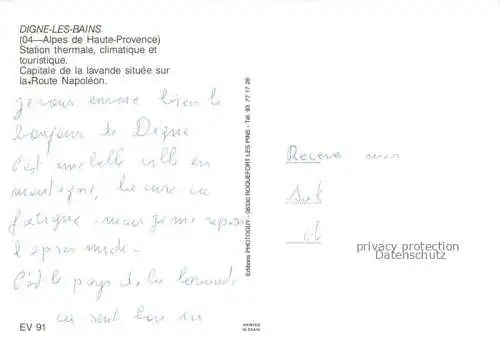 DIGNE-LES-BAINS
(04—Alpes de Haute-Provence)
Station thermale, climatique et
touristique.
Capitale de la lavande située sur
la Route Napoléon.
je vous envoie bien le
bonjour de Digne
C'est une belle ville en
montagne, la cure va
fatigue mais je me repose
l'apres midi.
C'est le pays de la lavande
ca sent bon
EV 91
Editions PHOTOGUY - 06330 ROQUEFORT LES PINS - Tél. 93 77 17 26
privacy protection
Datenschutz